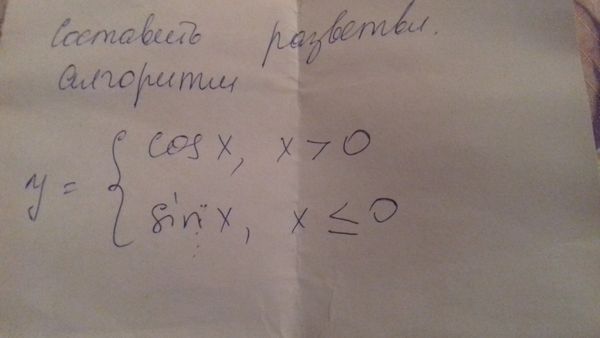 Составить разветвл.
алгоритм
y = { cos x, x > 0
sin x, x ≤ 0